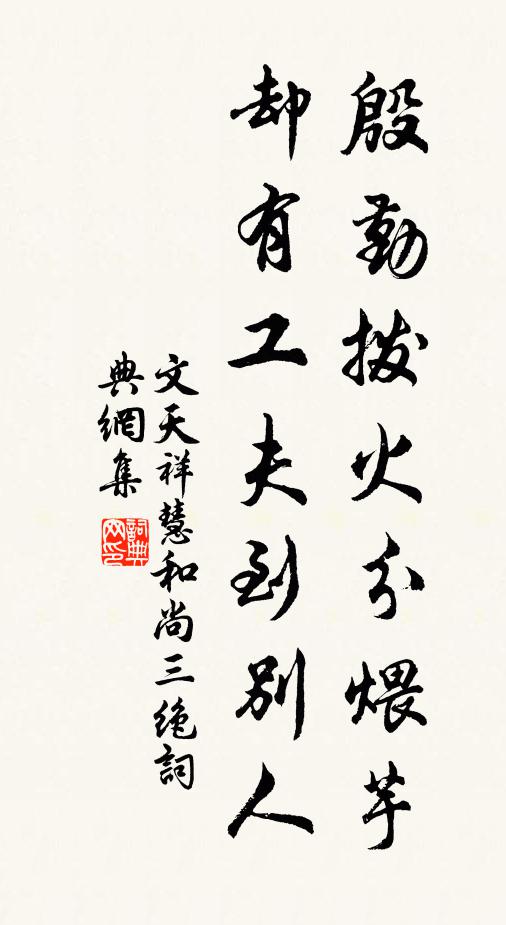 殷勤拨火分煨芋
却有工夫到别人
文天祥慧和尚三绝詞
典網集
詞典
网印